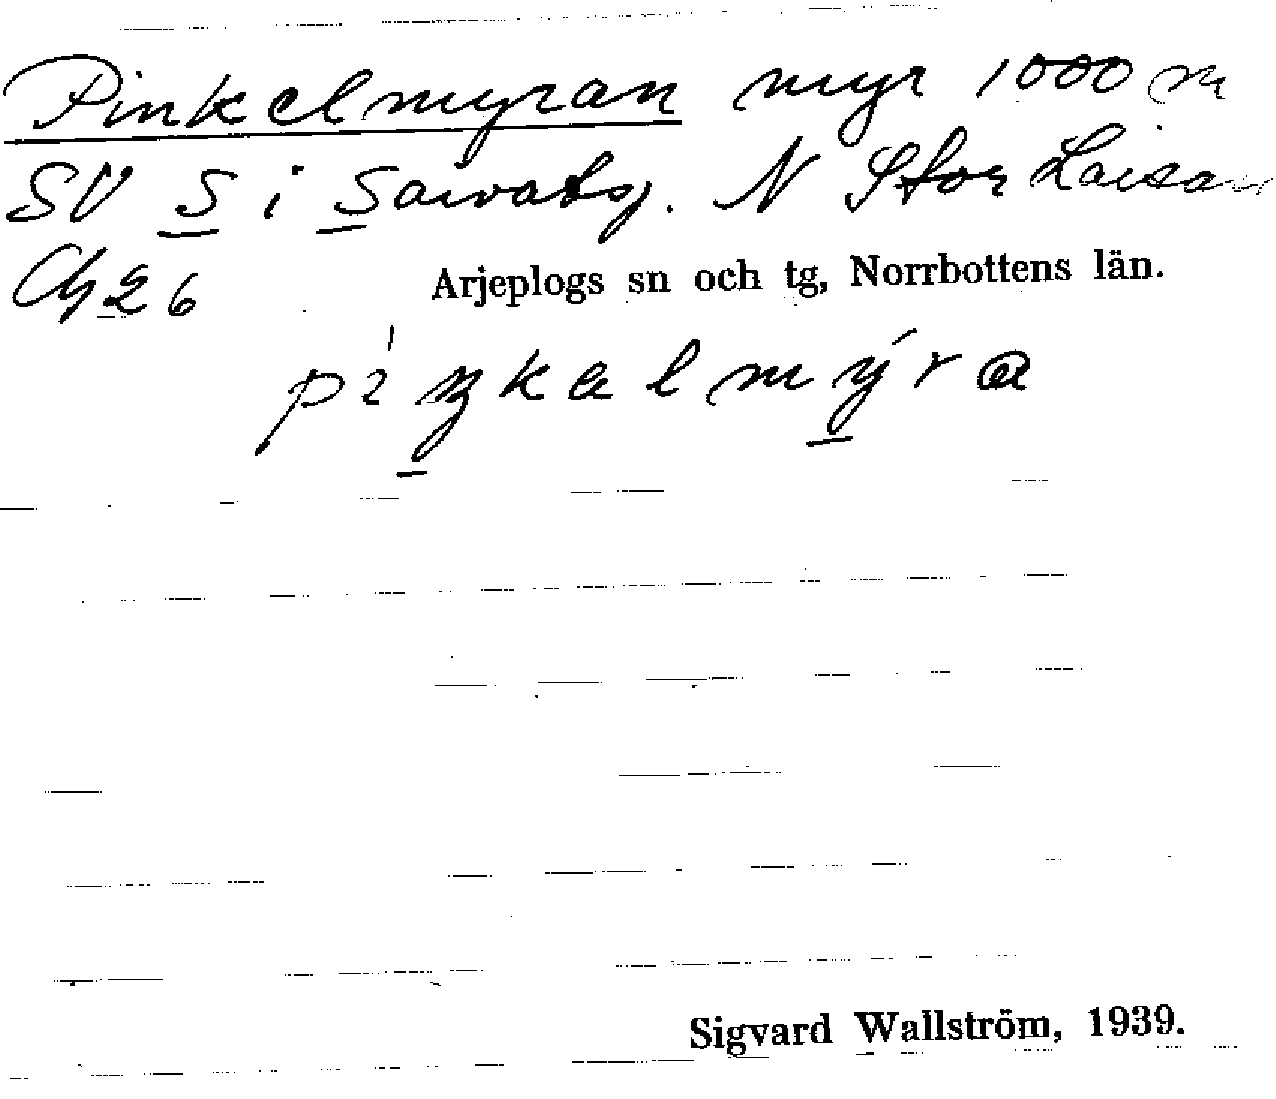 Pinkelmyran myr 1000 m
SV S i Saivatj. N Stor Laisan
26 Arjeplogs sn och tg, Norrbottens län.
Sigvard Wallström, 1939.